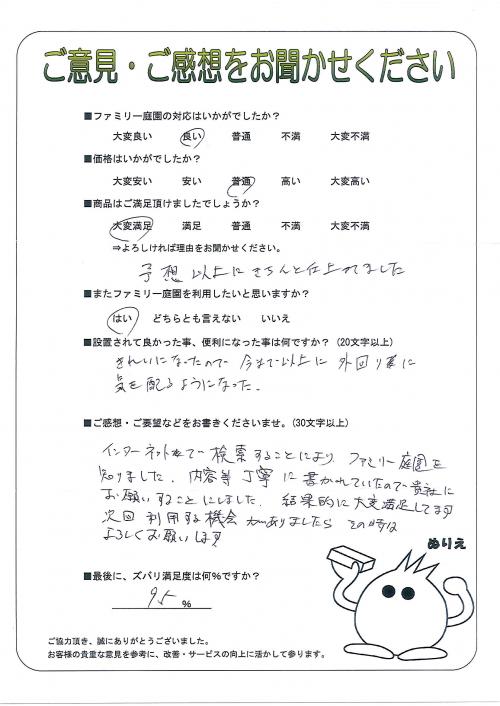 ご意見・ご感想をお聞かせください
■ファミリー庭園の対応はいかがでしたか？
大変良い 良い 普通 不満 大変不満
■価格はいかがでしたか？
大変安い 安い 普通 高い 大変高い
■商品はご満足頂けましたでしょうか？
大変満足 満足 普通 不満 大変不満
⇒よろしければ理由をお聞かせください。
予想以上にきちんと仕上れてました
■またファミリー庭園を利用したいと思いますか？
はい どちらとも言えない いいえ
■設置されて良かった事、便利になった事は何ですか？（20文字以上）
きれいになったので 今まで以上に 外回り に
気を配るようになった。
■ご感想・ご要望などをお書きくださいませ。（30文字以上）
インターネット で 検索することにより ファミリー庭園を
知りました。内容等 丁寧に書かれていたので貴社に
お願いすることにしました。結果的に大変満足してます
次回 利用する機会がありましたら その時は
よろしくお願いします
ぬりえ
■最後に、ズバリ満足度は何％ですか？
95 %
ご協力頂き、誠にありがとうございました。
お客様の貴重な意見を参考に、改善・サービスの向上に活かして参ります。